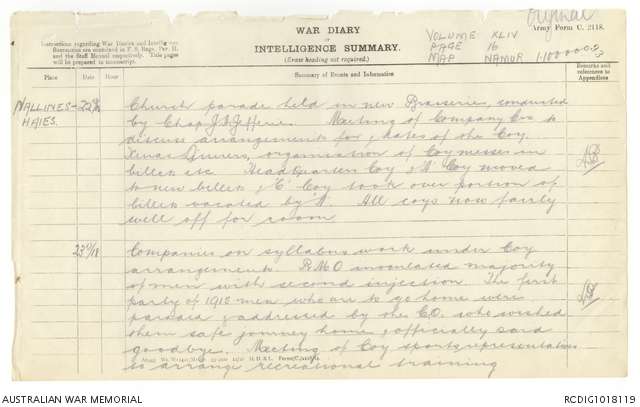 Original
Army Form C. 2118.
WAR DIARY
INTELLIGENCE SUMMARY.
(Erase heading not required.)
Instructions regarding War Diaries and Intelligence
Summaries are contained in F. S. Regs., Part II.
and the Staff Manual respectively. Title pages
will be prepared in manuscript.
VOLUME XLIV
PAGE 16
MAP NAMUR 1-100000
Place
Date
Hour
Summary of Events and Information
Remarks and
references to
Appendices
NALLINES-
HAIES.
22nd
Church parade held in new Brasserie, conducted
by Chap J. Jefferies. Meeting of Company Cos to
discuss arrangements for dates of the Coy
Xmas Dinners, organisation of Coy messes in
billets etc. Headquarters Coy & 'A' Coy moved
to new billets & 'C' Coy took over portion of
billets vacated by 'A'. All coys now fairly
well off for room
23rd
Companies on syllabus work under Coy
arrangements. R.M.O inoculated majority
of men with second injection. The first
party of 1915 men who are to go home were
paraded & addressed by the C.O. who wished
them safe journey home & officially said
goodbye. Meeting of Coy sports representatives
to arrange recreational training
AUSTRALIAN WAR MEMORIAL
RCDIG1018119